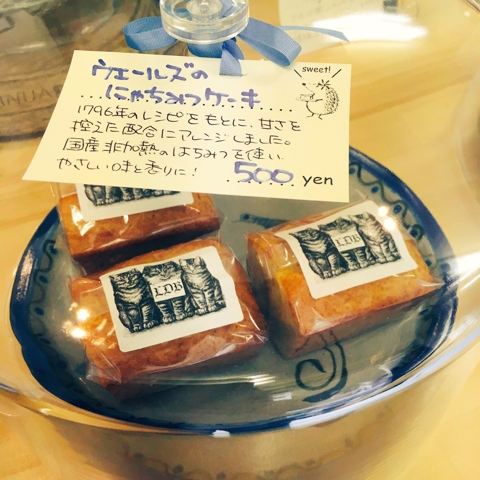 ウェールズの
にゃちみつケーキ
sweet!
1796年のレシピをもとに、甘さを
控えた配合にアレンジしました。
国産非加熱のはちみつを使い
やさしい味と香りに!
500 yen
LDB
LDB